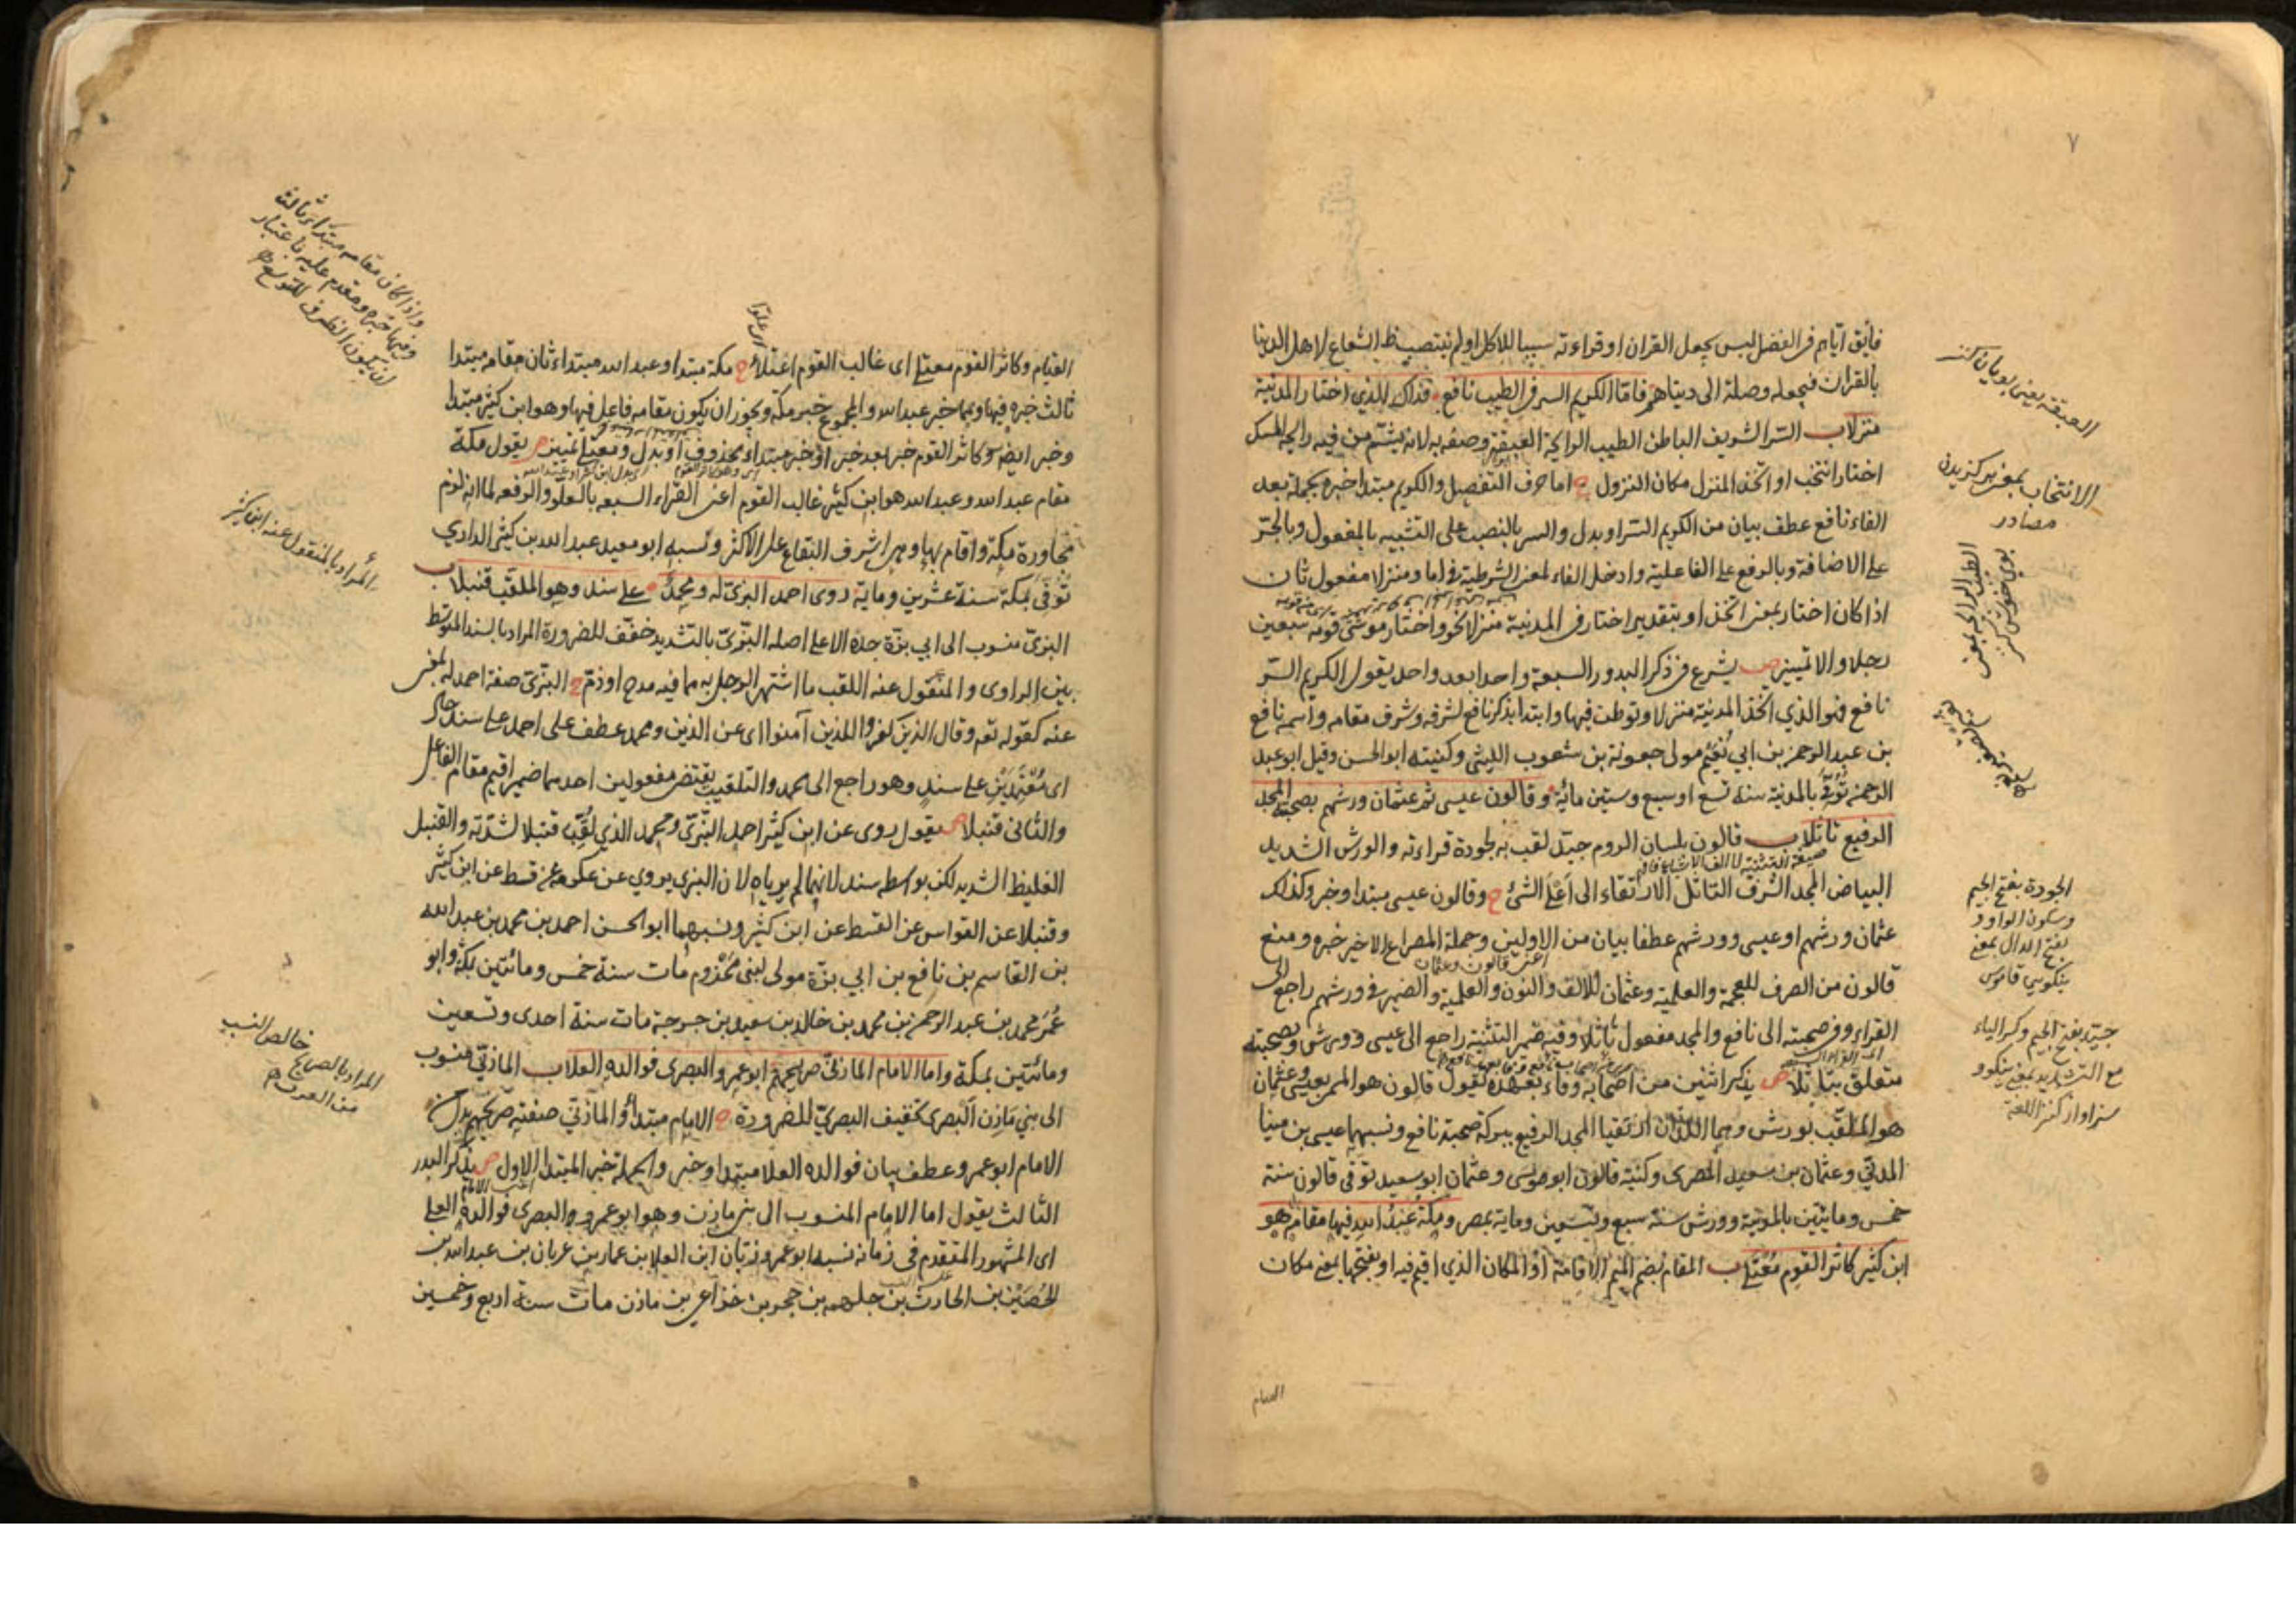 ٧
فايق آياتهم في الفضل ليس يجعل القران او قراءته سببا للاكل او لم ينتصب الشعاع لاهل الدنيا
بالقران فيجعله وصلة الى دنياهم فاما الكريم السر في الطيب نافع فذاك الذي اختار المدينة
منزلا ب السر الشريف الباطن الطيب الرائحة العبيقة وصفه به لانه يشتم من فيه رايحة المسك
اختار انتخب او اتخذ المنزل مكان النزول ح اما حرف التفصيل والكريم مبتدا خبره بجملة بعد
الفاء نافع عطف بيان من الكريم السر او بدل والسر بالنصب على التشبيه بالمفعول وبالجر
على الاضافة وبالرفع على الفاعلية وادخل الفاء لمعنى الشرطية في اما ومنزلا مفعول ثان
اذا كان اختار بمعنى اتخذ او بتقدير اختار في المدينة منزلا نحو واختار موسى قومه سبعين
رجلا والا تمييز ص يشرع في ذكر البدور السبعة واحدا بعد واحد يقول الكريم السر
نافع فهو الذي اتخذ المدينة منزلا وتوطن فيها وابتدا بذكر نافع لشرفه وشرف مقامه واسمه نافع
بن عبد الرحمن بن ابي نعيم مولى جعونة بن شعوب الليثي وكنيته ابو الحسن وقيل ابو عبد
الرحمن توفي بالمدينة سنة تسع او سبع وستين مائة وقالون عيسى ثم عثمان ورشهم بصحبته المجد
الرفيع تاثلا ب قالون بلسان الروم جيد لقب به لجودة قراءته والورش الشديد
البياض المجد الشرف التاثل الارتقاء الى اعلى الشئ ح وقالون عيسى مبتدا وخبر وكذلك
عثمان ورشهم او عيسى وورشهم عطفا بيان من الاولين وجملة المصراع الاخير خبره ومنع
قالون من الصرف للعجمة والعلمية وعثمان للالف والنون والعلمية والضمير في ورشهم راجع الى
القراء وفي صحبته الى نافع والمجد مفعول تاثلا وفيه ضمير التثنية راجع الى عيسى وورش وبصحبته
متعلق بتاثلا ص يذكر اثنين من اصحابه وفاء بعهده يقول قالون هو المسمى بعيسى وعثمان
هو الملقب بورش وهما اللذان ارتقيا المجد الرفيع ببركة صحبة نافع ونسبهما عيسى بن مينا
المدني وعثمان بن سعيد المصري وكنية قالون ابو موسى وعثمان ابو سعيد توفي قالون سنة
خمس ومايتين بالمدينة وورش سنة سبع وتسعين وماية بمصر ومكة عبد الله فيها مقامه هو
ابن كثير كاثر القوم معتلا ب المقام بضم الميم الاقامة او المكان الذي اقيم فيه او بفتحها بمعنى مكان
القيام
الانتخاب بمعنى بركزيدن
مصادر
الطيب الرائحة بمعنى
بوي خوش كنز
الجودة بفتح الجيم
وسكون الواو و
بفتح الدال بمعنى
نيكويي قاموس
جيد بفتح الجيم وكسر الياء
مع التشديد بمعنى نيكو و
سزاوار كنز اللغة
القيام وكاثر القوم معتلا اى غالب القوم اعتلاء ح مكة مبتدا وعبد الله مبتداء ثان مقامه مبتدا
ثالث خبره فيها وهما خبر عبد الله والمجموع خبر مكة ويجوز ان يكون مقامه فاعل فيها وهو ابن كثير مبتدا
وخبر ايضا وكاثر القوم خبر بعد خبر او خبر مبتداء محذوف او بدل ومعتلا تمييز ص يقول مكة
مقام عبد الله وعبد الله هو ابن كثير غالب القوم اعنى القراء السبعة بالعلو والرفعة لما انه لزم
مجاورة مكة واقام بها وهي اشرف البقاع على الاكثر ونسبه ابو معبد عبد الله بن كثير الداري
توفي بمكة سنة عشرين وماية روى احمد البزي له ومحمد على سند وهو الملقب قنبلا ب
البزي منسوب الى ابي بزة جده الاعلى اصله البزي بالتشديد خفف للضرورة المراد بالسند المتوسط
بين الراوى والمنقول عنه اللقب ما اشتهر الرجل به مما فيه مدح او ذم ح البزي صفة احمد له بمعنى
عنه كقوله تعه وقال الذين كفروا للذين آمنوا اى عن الذين ومحمد عطف على احمد على سند حال
اى معتمدين على سند وهو راجع الى محمد والتلقيب يقتضى مفعولين احدهما ضمير اقيم مقام الفاعل
والثانى قنبلا ص يقول روى عن ابن كثير احمد البزي ومحمد الذي لقب قنبلا لشدته والقنبل
الغليظ الشديد لكن بواسطه سند لانهما لم يرياه لان البزى يروي عن عكرمة عن قسط عن ابن كثير
وقنبلا عن القواس عن القسط عن ابن كثير ونسبهما ابو الحسن احمد بن محمد بن عبد الله
بن القاسم بن نافع بن ابي بزة مولى لبنى مخزوم مات سنة خمس ومائتين بمكة وابو
عمر محمد بن عبد الرحمن بن محمد بن خالد بن سعيد بن جرجة مات سنة احدى وتسعين
ومائتين بمكة واما الامام المازني صريحهم ابو عمرو البصرى فوالده العلا ب المازني منسوب
الى بني مازن البصرى تخفيف البصري للضرورة ح الامام مبتدا والمازني صفته صريحهم بدل من
الامام ابو عمرو عطف بيان فوالده العلا مبتدا وخبر والجملة خبر المبتدا الاول ص يذكر البدر
الثالث يقول اما الامام المنسوب الى بني مازن وهو ابو عمرو والبصرى فوالده العلى
اى المشهور المتقدم فى زمانه نسبه ابو عمرو زبان ابن العلا بن عمار بن عريان بن عبد الله بن
الحصين بن الحارث بن جلهمه بن حجر بن خزاعى بن مازن مات سنة اربع وخمسين
اى علوا
واذا كان مقامه مبتداء ثالثا
وفيها خبره ومقدم عليه باعتبار
ان يكون الظرف للتوسع
المراد بالمنقول عنه ابن كثير
المراد بالصريح خالص النسب
من العرب